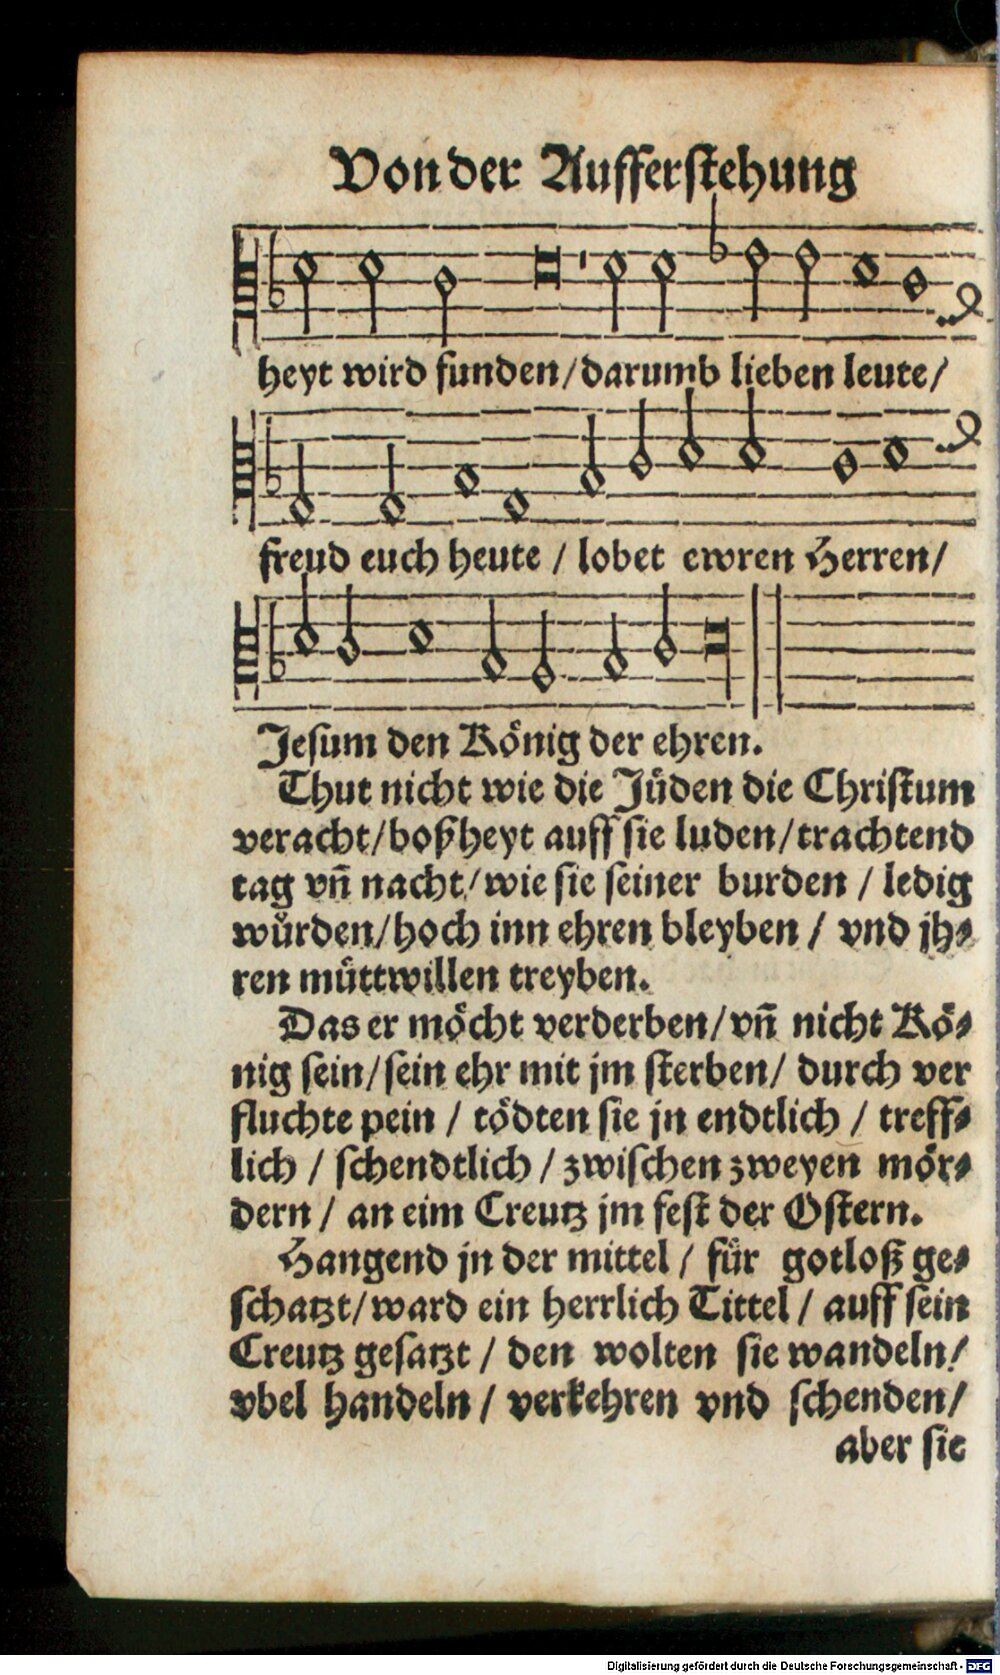 Von der Aufferstehung
heyt wird funden/darumb lieben leute/
freud euch heute / lobet ewren Herren/
Jesum den König der ehren.
Thut nicht wie die Jüden die Christum
veracht/boßheyt auff sie luden/trachtend
tag vn̄ nacht/wie sie seiner burden / ledig
würden/hoch inn ehren bleyben / vnd jh⸗
ren müttwillen treyben.
Das er möcht verderben/vn̄ nicht Kö⸗
nig sein/sein ehr mit jm sterben/ durch ver
fluchte pein / tödten sie jn endtlich / treff⸗
lich / schendtlich / zwischen zweyen mör⸗
dern / an eim Creutz jm fest der Ostern.
Hangend jn der mittel / für gotloß ge⸗
schatzt/ward ein herrlich Tittel / auff sein
Creutz gesatzt / den wolten sie wandeln/
vbel handeln / verkehren vnd schenden/
aber sie
Digitalisierung gefördert durch die Deutsche Forschungsgemeinschaft - DFG